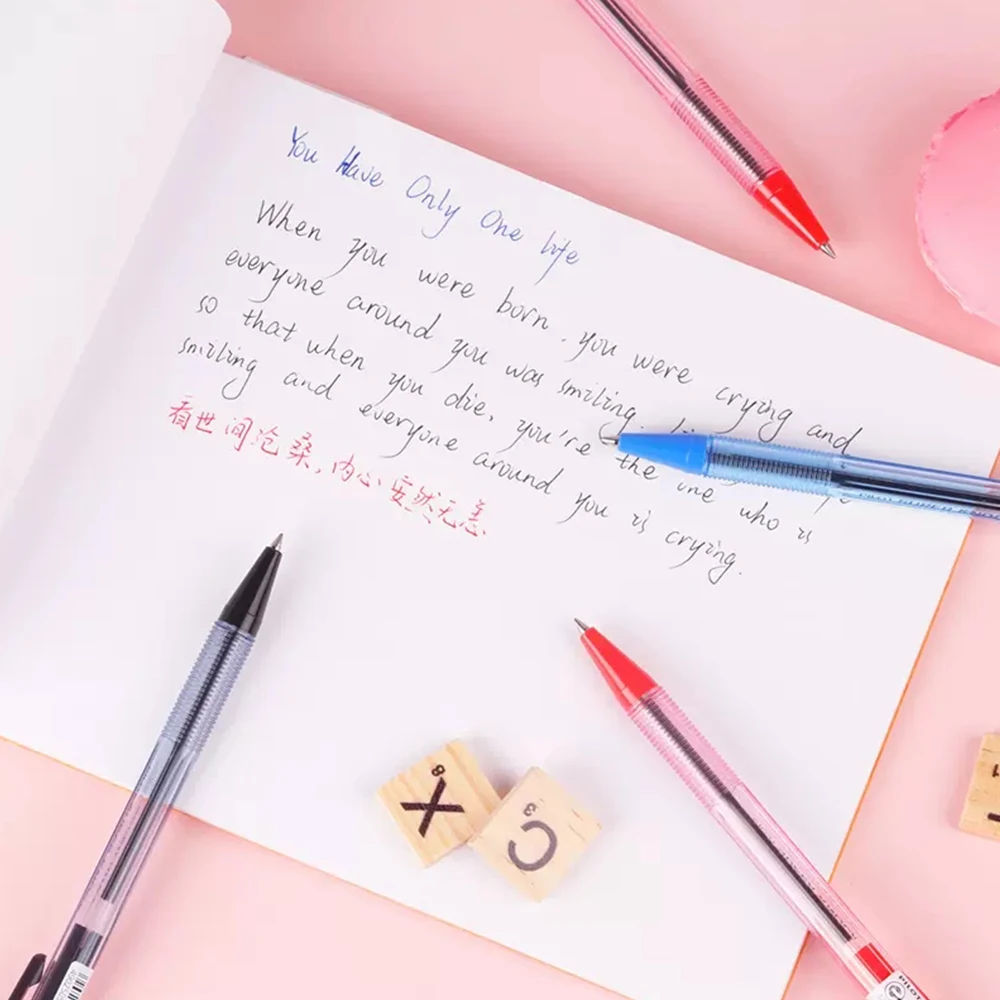 You Have Only One life
When you were born. you were crying and
everyone around you was smiling.
so that when you die, you're the one who is
smiling and everyone around you is crying.
看世间沧桑,内心安然无恙.
X
8
C
3
PILOT